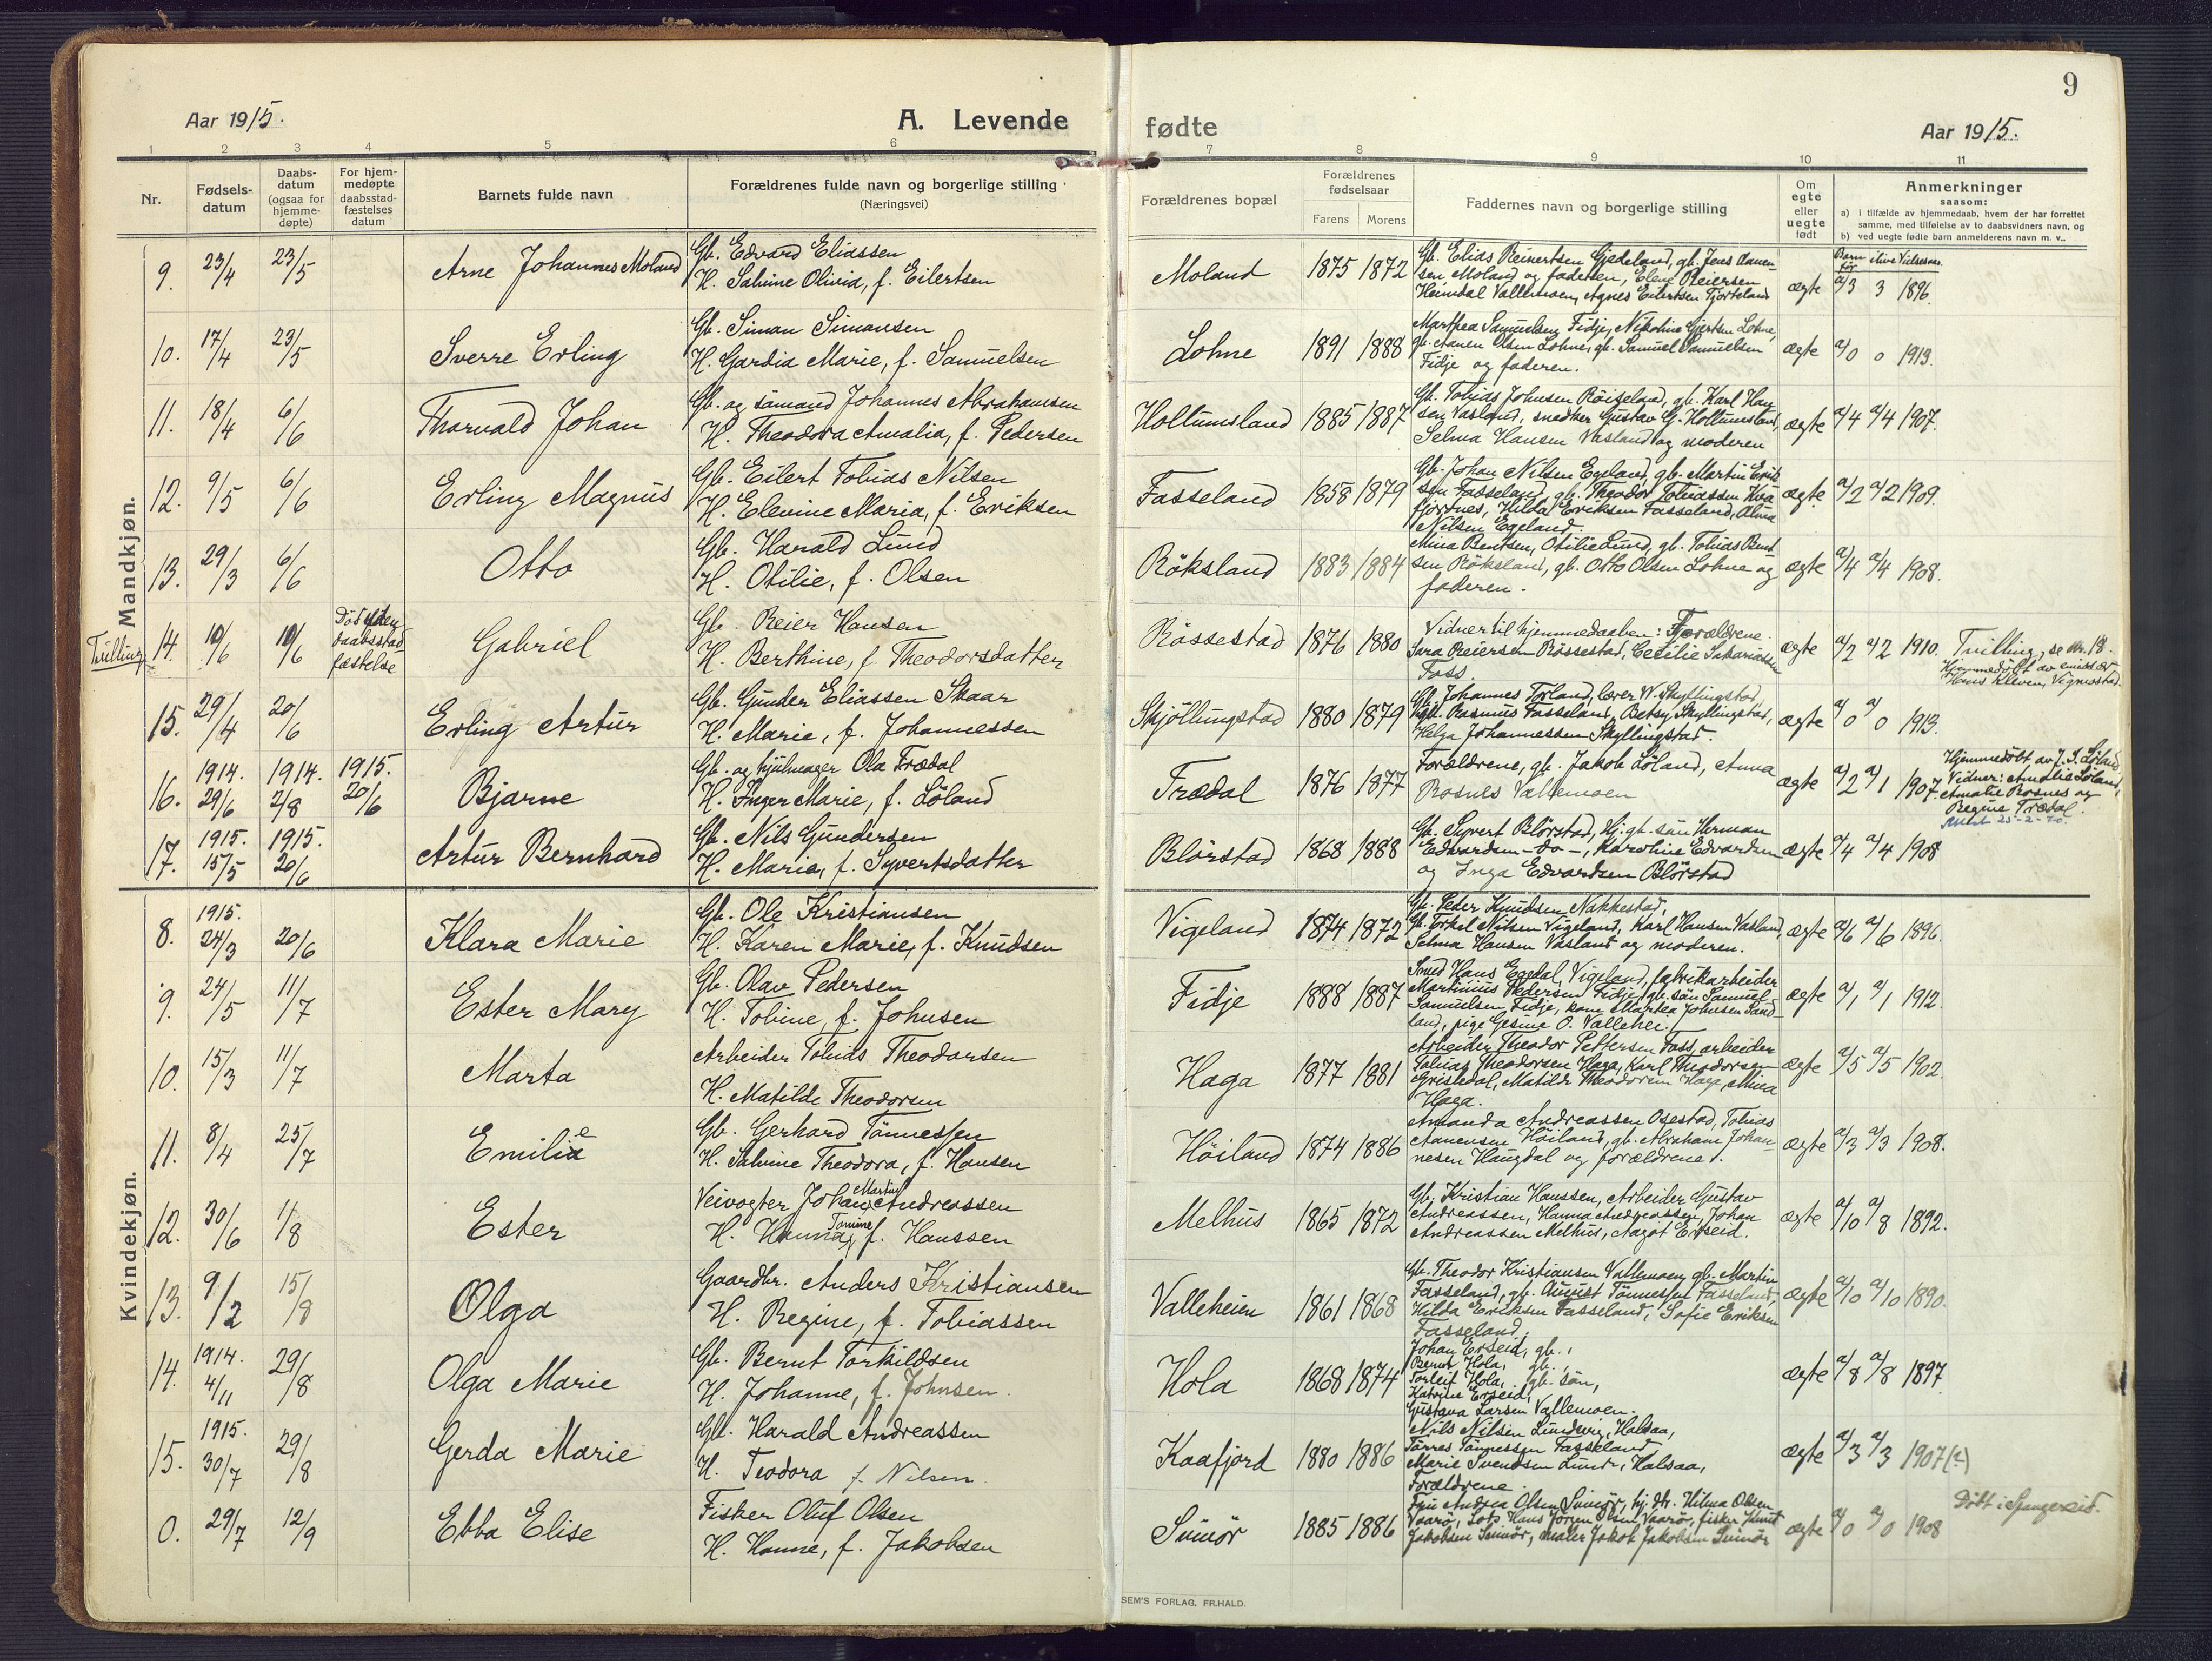 9
Aar 1915.
A. Levende
fødte
Aar 1915.
1 2 3 4 5 6 7 8 9 10 11
Nr.
Fødsels-
datum
Daabs-
datum
(ogsaa for
hjemme-
døpte)
For hjem-
medøpte
daabsstad-
fæstelses
datum
Barnets fulde navn
Forældrenes fulde navn og borgerlige stilling
(Næringsvei)
Forældrenes bopæl
Forældrenes
fødselsaar
Farens Morens
Faddernes navn og borgerlige stilling
Om
egte
eller
uegte
født
Anmerkninger
saasom:
a) i tilfælde av hjemmedaab, hvem der har forrettet
samme, med tilføielse av to daabsvidners navn, og
b) ved uegte fødte barn anmelderens navn m. v..
Mandkjøn.
9. 23/4 23/5 Arne Johannes Moland
Gb. Edvard Eliassen
H. Salvine Olivia, f. Eilertsen
Moland 1875 1872
Gb. Elias Reinertsen Gjedeland, gb. Jens Aanen-
sen Moland og faderen, Elene Reiersen
Heimdal Vallemoen, Agnes Eilertsen Fjorteland
ægte
a/3 3 1896.
10. 17/4 23/5 Sverre Erling
Gb. Siman Simonsen
H. Gardia Marie, f. Samuelsen
Lohne 1891 1888
Marthea Samuelsen Fidje, Nikoline Gjertsen Lohne,
gb. Aanen Olsen Lohne, gb. Samuel Samuelsen
Fidje og faderen.
ægte a/0 0 1913.
11. 18/4 6/6 Thorvald Johan
Gb. og sømand Johannes Abrahamsen
H. Theodora Amalia, f. Pedersen
Hollumsland 1885 1887
Gb. Tobias Johnsen Röiseland, gb. Karl Han
sen Vasland, snedker Gustav G. Hollumsland,
Selma Hansen Vasland og moderen
ægte a/4 a/4 1907.
12. 9/5 6/6 Erling Magnus
Gb. Eilert Tobias Nilsen
H. Elevine Maria, f. Eriksen
Fasseland 1858 1879
Gb. Johan Nilsen Egeland, gb. Martin Erik
sen Fasseland, gb. Theodor Tobiassen Kva
fjordnes, Hilda Eriksen Fasseland, Alma
Nilsen Egeland.
ægte a/2 a/2 1909.
13. 29/3 6/6 Otto
Gb. Harald Lund
H. Otilie, f. Olsen
Röksland 1883 1884
Mina Bentsen, Otilie Lund, gb. Tobias Bent
sen Röksland, gb. Otto Olsen Lohne og
faderen.
ægte a/4 a/4 1908.
Tvilling
14. 10/6 10/6
Död uden
daabsstad
fæstelse
Gabriel
Gb. Reier Hansen
H. Berthine, f. Theodorsdatter
Rössestad 1876 1880
Vidner til hjemmedaaben: Forældrene.
Sara Reiersen Røssestad, Cecilie Sakariassen
Foss.
ægte a/2 a/2 1910.
Tvilling, se nr. 18.
Hjemmedöbt av emissær
Hans Kleven, Vigmostad.
15. 29/4 20/6 Erling Artur
Gb. Gunder Eliassen Skaar
H. Marie, f. Johannessen
Skjöllingstad 1880 1879
Gb. Johannes Torland, lærer W. Skyllingstad,
Gb. Rasmus Fasseland, Betsy Skyllingstad,
Helga Johannessen Skyllingstad.
ægte a/0 a/0 1913.
16. 1914. 29/6 1914. 2/8 1915. 20/6 Bjarne
Gb. og hjulmager Ola Trædal
H. Inger Marie, f. Löland
Trædal 1876 1877
Forældrene, gb. Jakob Löland, Anna
Rosnes Vallemoen
ægte a/2 a/1 1907.
Hjemmedöbt av J. S. Löland,
Vidner: Amalie Löland,
Amalie Rosnes og
Regine Trædal.
17. 1915. 15/5 1915. 20/6 Artur Bernhard
Gb. Nils Gundersen
H. Maria, f. Syvertsdatter
Blörstad 1868 1888
Gb. Syvert Blörstad, Hj. gb. sön Herman
Edvardsen -do-, Karoline Edvardsen
og Inga Edvardsen Blörstad
ægte a/4 a/4 1908
Kvindekjøn.
8. 1915. 24/3 20/6 Klara Marie
Gb. Ole Kristiansen
H. Karen Marie, f. Knudsen
Vigeland 1874 1872
Gb. Peder Knudsen Nakkestad,
Gb. Torkel Nilsen Vigeland, Karl Hansen Vasland,
Selma Hansen Vasland og moderen.
ægte a/6 a/6 1896.
9. 24/5 11/7 Ester Mary
Gb. Olav Pedersen
H. Tobine, f. Johnsen
Fidje 1888 1887
Smed Hans Egedal, Vigeland, fabrikarbeider
Martinius Pedersen Fidje, gb. sön Samuel
Samuelsen Fidje, kone Martea Johnsen Sand-
land, pige Gesine O. Vallehei.
ægte a/1 a/1 1912.
10. 15/3 11/7 Marta
Arbeider Tobias Theodorsen
H. Matilde Theodorsen
Haga 1877 1881
Arbeider Theodor Pettersen Foss, arbeider
Tobias Theodorsen Haga, Karl Theodorsen
Grisledal, Matilde Theodorsen Haga, Mina
Haga.
ægte a/5 a/5 1902.
11. 8/4 25/7 Emilie
Gb. Gerhard Tönnessen
H. Salvine Theodora, f. Hansen
Höiland 1874 1886
Amanda Andreassen Osestad, Tobias
Aanensen Höiland, gb. Abraham Johan-
nesen Haugdal og forældrene.
ægte a/3 a/3 1908.
12. 30/6 1/8 Ester
Veivogter Johan Martin Andreassen
H. Hanna Tomine, f. Hanssen
Melhus 1865 1872
Gb. Kristian Hanssen, Arbeider Gustav
Andreassen, Hanna Andreassen, Johan
Andreassen Melhus, Aagot Erseid.
ægte a/10 a/8 1892.
13. 9/2 15/8 Olga
Gaardbr. Anders Kristiansen
H. Regine, f. Tobiassen
Valleheien 1861 1868
Gb. Theodor Kristiansen Vallemoen, gb. Martin
Fasseland, gb. August Tönnessen Fasseland,
Hilda Eriksen Fasseland, Sofie Eriksen
Fasseland.
ægte a/10 a/10 1890.
14. 1914. 4/11 29/8 Olga Marie
Gb. Bernt Torkildsen
H. Johanne, f. Johnsen.
Hola 1868 1874
Johan Erseid, gb.,
Bernt Hola, gb.,
Torleif Hola, gb. sön,
Katrine Erseid,
Gustava Larsen Vallemoen.
ægte a/8 a/8 1897
15. 1915. 30/7 29/8 Gerda Marie
Gb. Harald Andreassen
H. Teodora f. Nilsen.
Kaafjord 1880 1886
Nils Nilsen Lundevig, Halsaa,
Törres Tönnessen Fasseland,
Marie Svendsen Lunde, Halsaa,
Forældrene.
ægte a/3 a/3 1907(?)
0. 29/7 12/9 Ebba Elise
Fisker Oluf Olsen
H. Hanne, f. Jakobsen
Svinör 1885 1886
Fru Andrea Olsen Svinör, hj. dtr. Hilma Olsen
Vaarö, Lods Hans Jörgen Olsen Vaarö, fisker Knut
Jakobsen Svinör, maler Jakob Jakobsen Svinör
ægte a/0 a/0 1908
Döbt i Spangereid.
SEM'S FORLAG, FR.HALD.